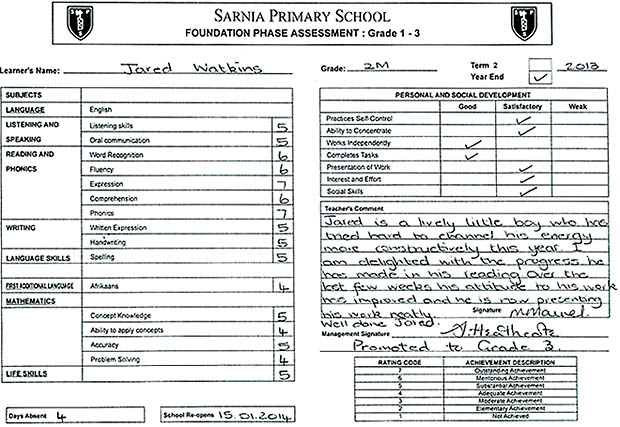 SARNIA PRIMARY SCHOOL
FOUNDATION PHASE ASSESSMENT : Grade 1 - 3
Learner's Name: Jared Watkins
Grade: 2M
Term 2
Year End ✓
2013
SUBJECTS
LANGUAGE English
LISTENING AND Listening skills 5
SPEAKING Oral communication 5
READING AND Word Recognition 6
PHONICS Fluency 6
Expression 7
Comprehension 6
Phonics 7
WRITING Written Expression 5
Handwriting 5
LANGUAGE SKILLS Spelling 5
FIRST ADDITIONAL LANGUAGE Afrikaans 4
MATHEMATICS
Concept Knowledge 5
Ability to apply concepts 4
Accuracy 5
Problem Solving 4
LIFE SKILLS 5
Days Absent 4
School Re-opens 15.01.2014
PERSONAL AND SOCIAL DEVELOPMENT
Good Satisfactory Weak
Practices Self Control ✓
Ability to Concentrate ✓
Works Independently ✓
Completes Tasks ✓
Presentation of Work ✓
Interest and Effort ✓
Social Skills ✓
Teacher's Comment
Jared is a lively little boy who has
tried hard to channel his energy
more constructively this year. I
am delighted with the progress he
has made in his reading. Over the
last few weeks his attitude to his work
has improved and he is now presenting
his work neatly. Signature
Well done Jared.
Management Signature
Promoted to Grade 3.
RATING CODE ACHIEVEMENT DESCRIPTION
7 Outstanding Achievement
6 Meritorious Achievement
5 Substantial Achievement
4 Adequate Achievement
3 Moderate Achievement
2 Elementary Achievement
1 Not Achieved